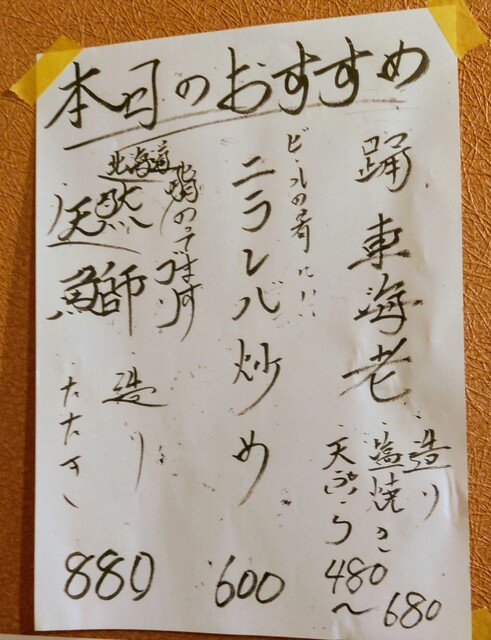 本日のおすすめ
踊車海老
造り
塩焼き
天ぷら
480
〜680
ビールの肴にいい
ニラレバ炒め
600
脂のってます
ブリ
北海道
天然
鰤
造り
たたき
880